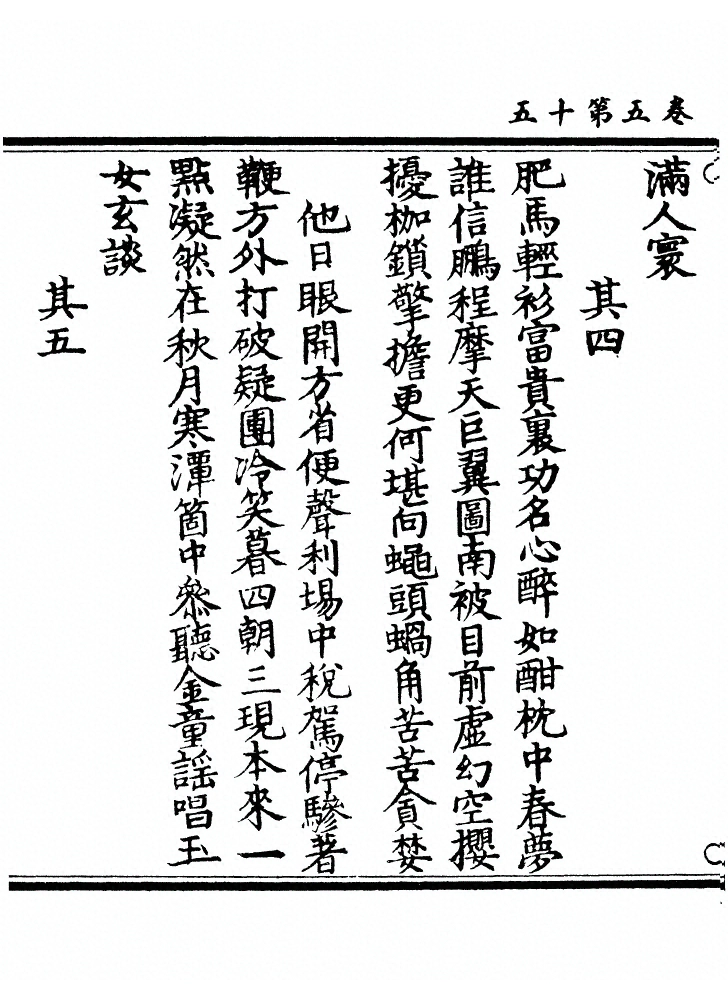 卷五第十五
滿人寰
其四
肥馬輕衫富貴裏功名心醉如酣枕中春夢
誰信鵬程摩天巨翼圖南被目前虛幻空攖
擾枷鎖擎擔更何堪向蠅頭蝸角苦苦貪婪
他日眼開方省便聲利場中稅駕停驂著
鞭方外打破疑團冷笑暮四朝三現本來一
點凝然在秋月寒潭箇中叅聽金童謡唱玉
女玄談
其五